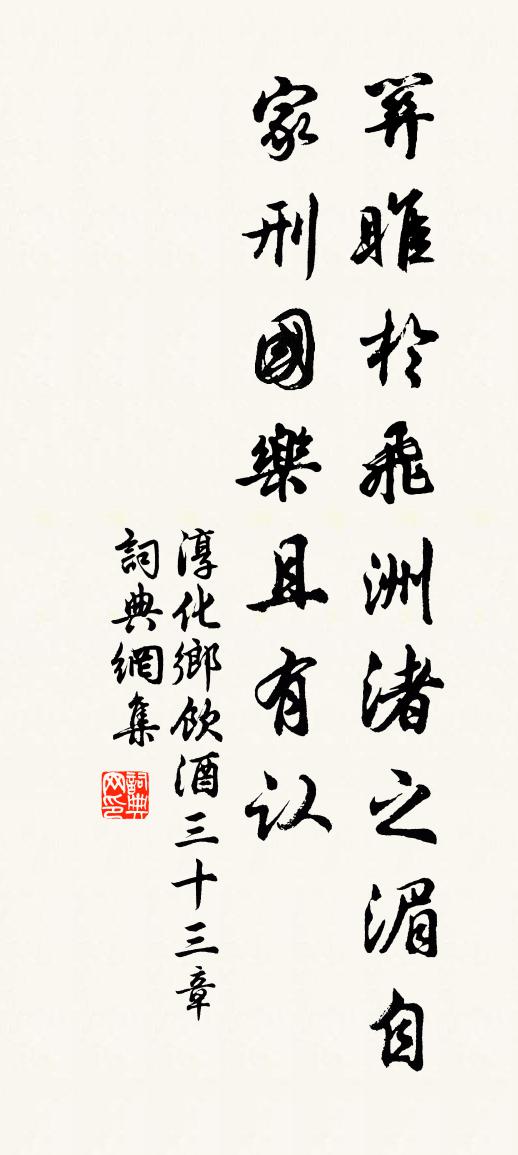 睢於飛洲渚之湄自
家刑國樂且有认
淳化鄉飲酒三十三章
詞典網集
詞典网印